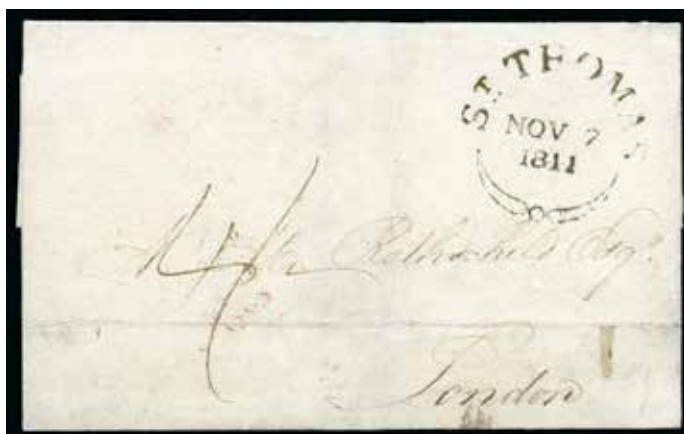 ST. THOMAS
NOV 7
1811
Rothschild Esqr.
London